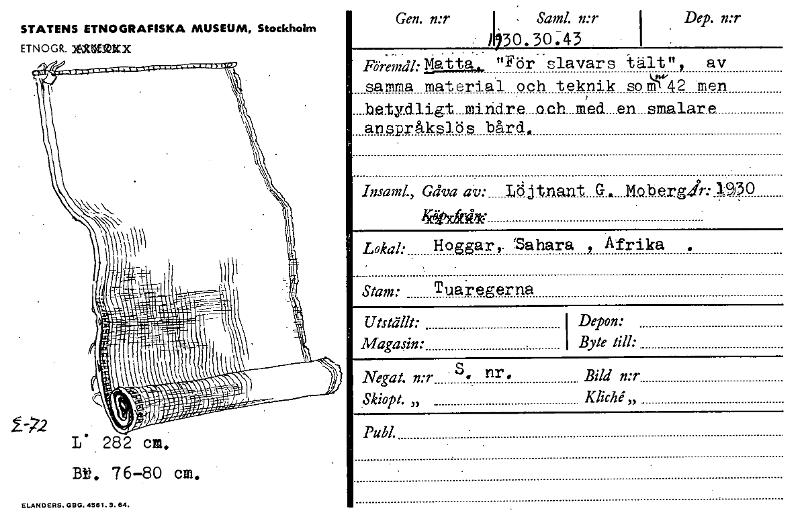 STATENS ETNOGRAFISKA MUSEUM, Stockholm
ETNOGR.
E-72
L· 282 cm.
Br. 76-80 cm.
ELANDERS. GBG. 4561. 3. 64.
Gen. n:r Saml. n:r Dep. n:r
1930.30.43
Föremål: Matta. "För slavars tält", av
samma material och teknik som 42 men
betydligt mindre och med en smalare
anspråkslös bård.
Insaml., Gåva av: Löjtnant G. Moberg År: 1930
Köp från:
Lokal: Hoggar, Sahara , Afrika .
Stam: Tuaregerna
Utställt: Depon:
Magasin: Byte till:
Negat. n:r S. nr. Bild n:r
Skiopt. „ Kliché „
Publ.